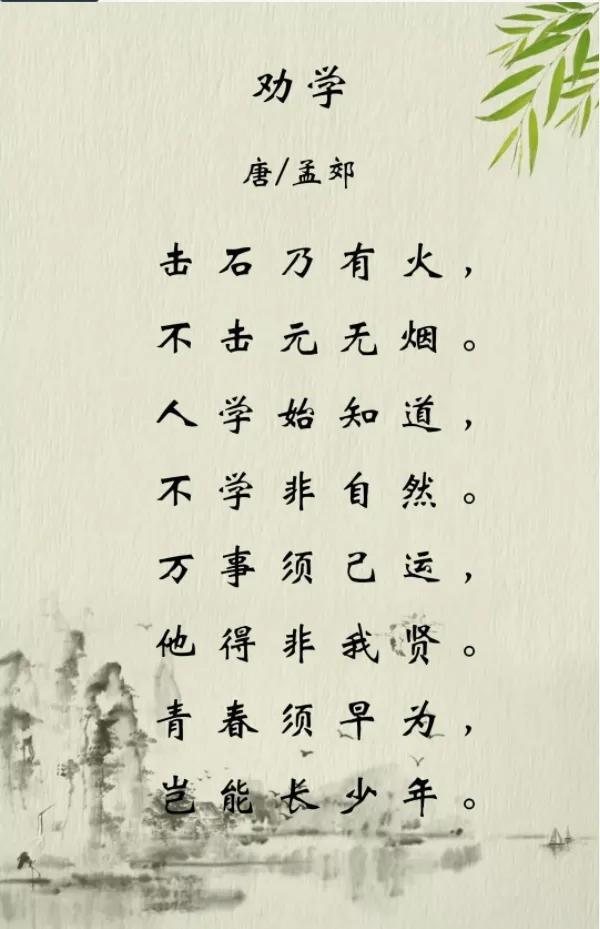 劝学
唐/孟郊
击石乃有火，
不击元无烟。
人学始知道，
不学非自然。
万事须己运，
他得非我贤。
青春须早为，
岂能长少年。